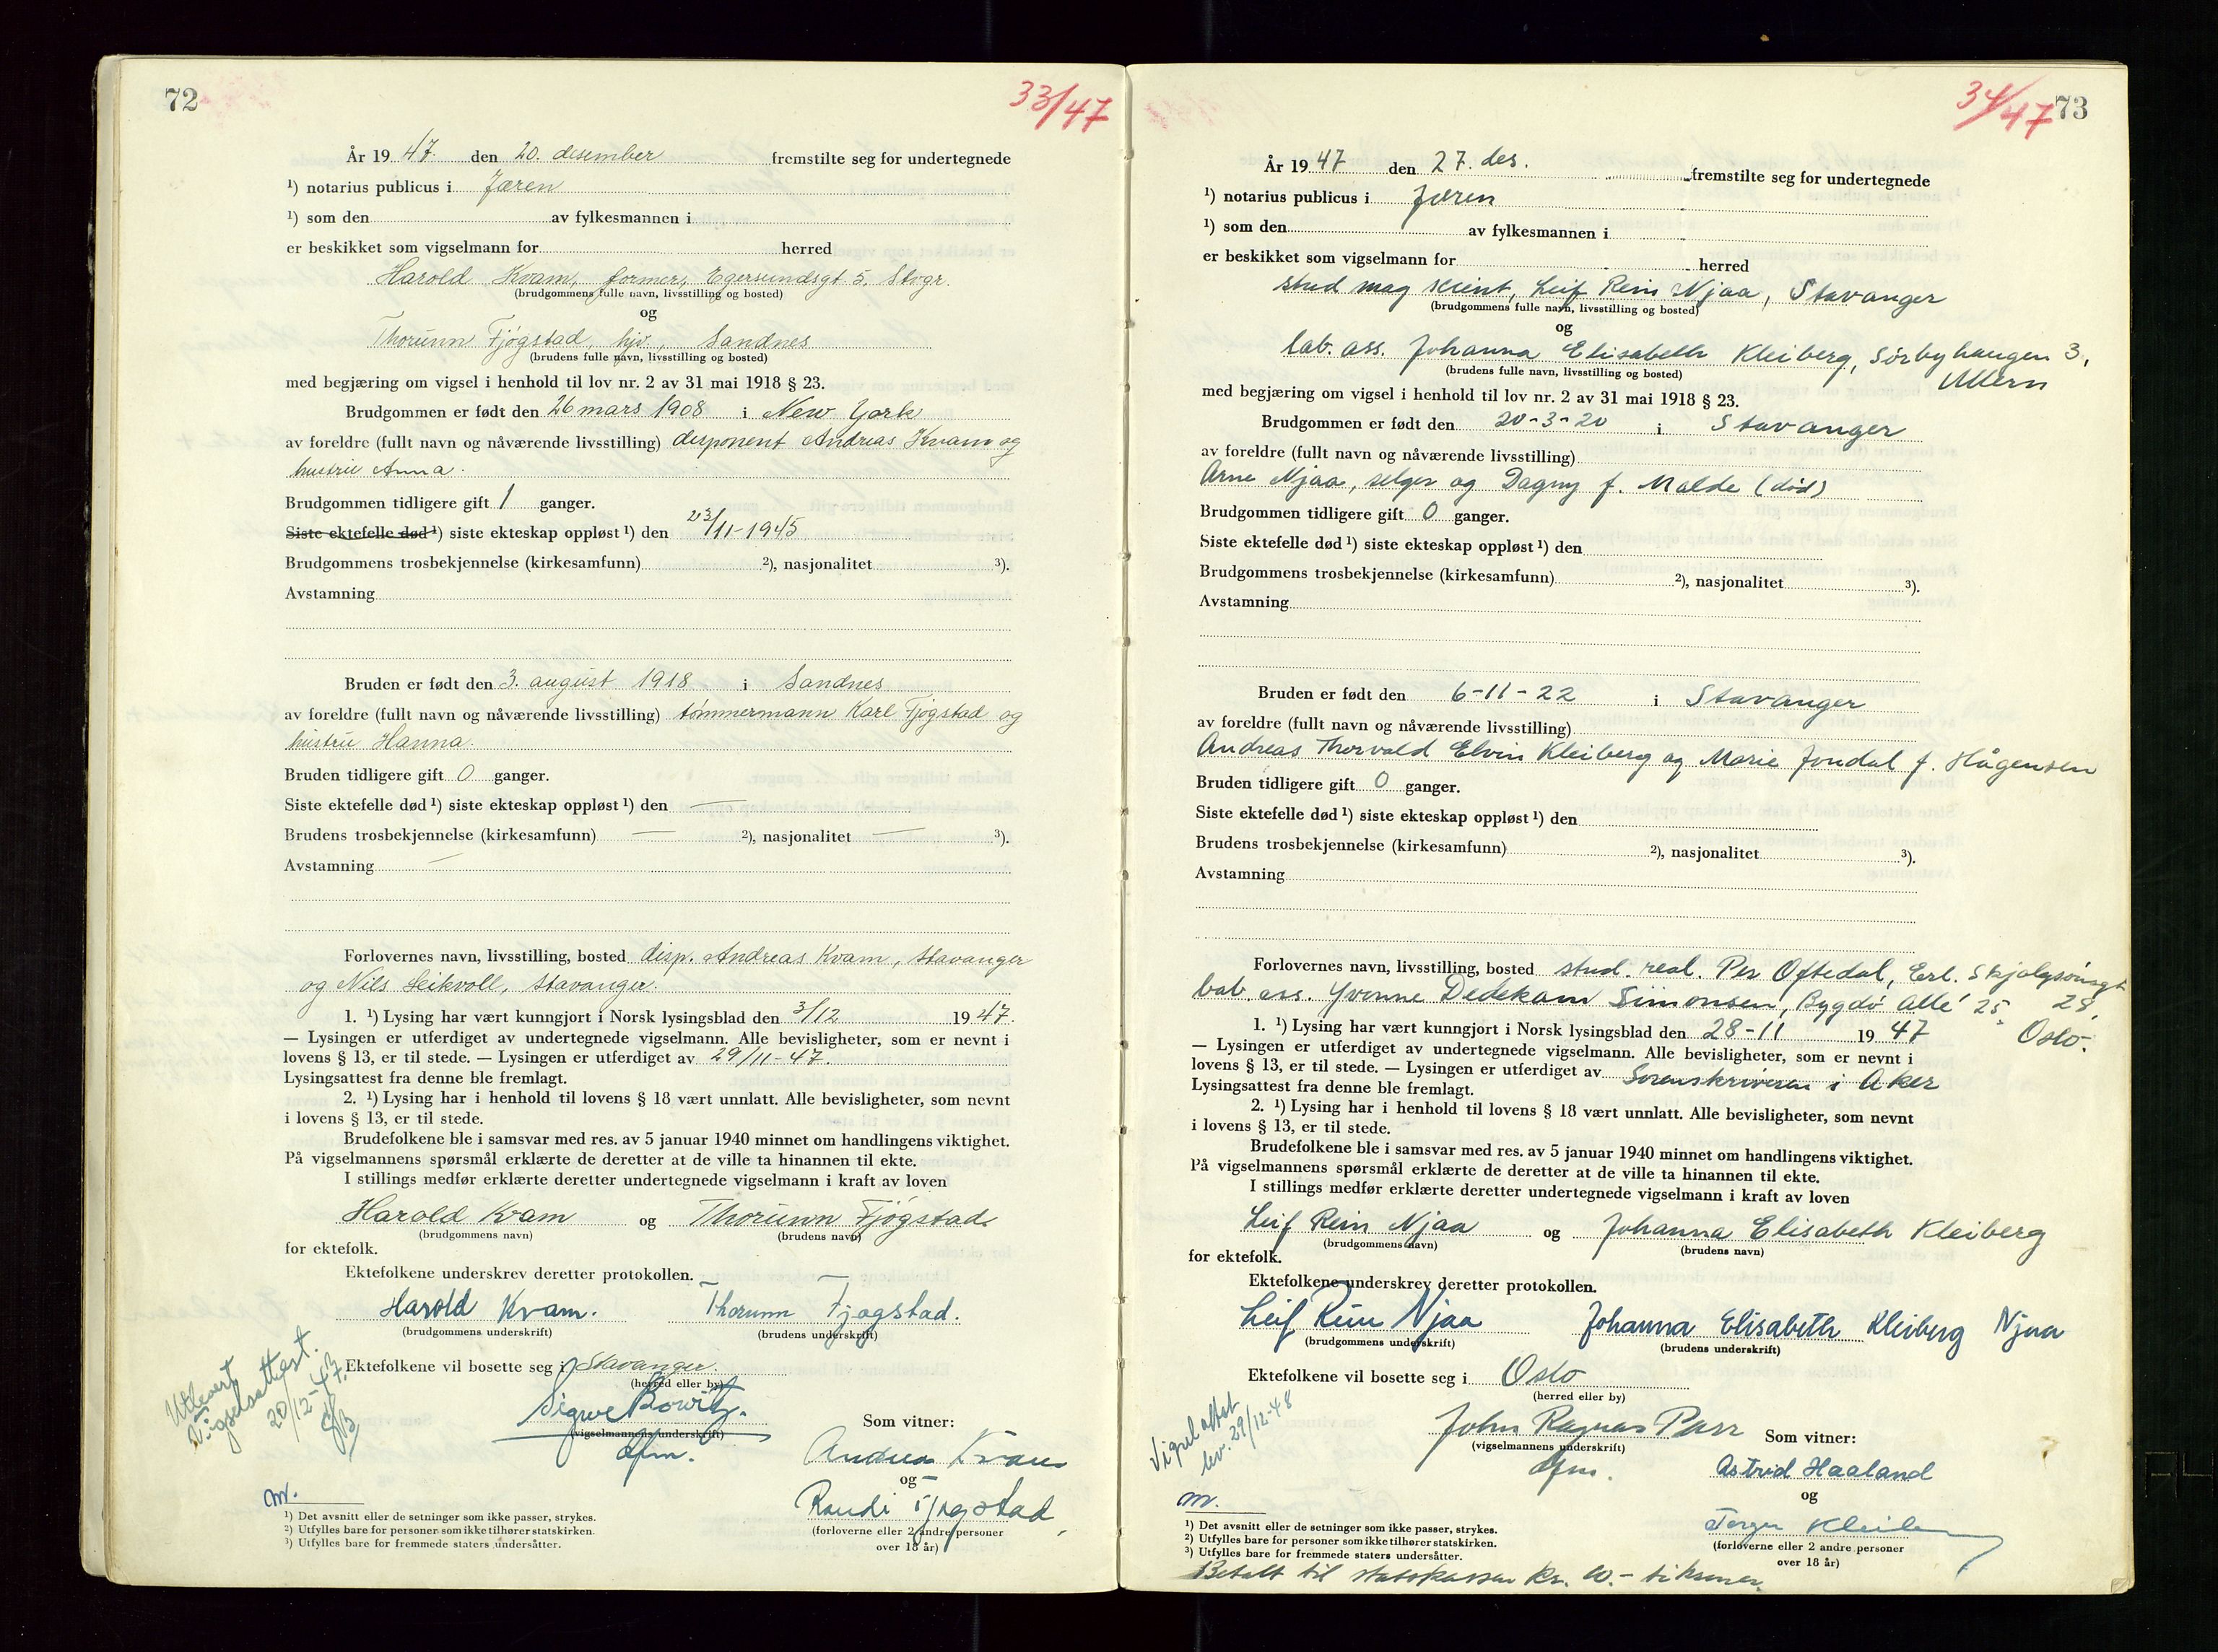 72
33/47
År 19 47. den 20. desember fremstilte seg for undertegnede
¹) notarius publicus i Jæren
¹) som den av fylkesmannen i
er beskikket som vigselmann for herred
Harold Kvam, former, Egersundsgt. 5, Stvgr.
(brudgommens fulle navn, livsstilling og bosted)
og
Thorunn Fjøgstad, hjv., Sandnes
(brudens fulle navn, livsstilling og bosted)
med begjæring om vigsel i henhold til lov nr. 2 av 31 mai 1918 § 23.
Brudgommen er født den 26 mars 1908 i New York
av foreldre (fullt navn og nåværende livsstilling) disponent Andreas Kvam og
hustru Anna.
Brudgommen tidligere gift 1 ganger.
Siste ektefelle død ¹) siste ekteskap oppløst ¹) den 23/11-1945
Brudgommens trosbekjennelse (kirkesamfunn) ²), nasjonalitet ³).
Avstamning
Bruden er født den 3. august 1918 i Sandnes
av foreldre (fullt navn og nåværende livsstilling) tømmermann Karl Fjøgstad og
hustru Hanna.
Bruden tidligere gift 0 ganger.
Siste ektefelle død ¹) siste ekteskap oppløst ¹) den —
Brudens trosbekjennelse (kirkesamfunn) — ²), nasjonalitet — ³).
Avstamning —
Forlovernes navn, livsstilling, bosted disp. Andreas Kvam, Stavanger
og Nils Seikvoll, Stavanger.
1. ¹) Lysing har vært kunngjort i Norsk lysingsblad den 3/12 19 47.
— Lysingen er utferdiget av undertegnede vigselmann. Alle bevisligheter, som er nevnt i
lovens § 13, er til stede. — Lysingen er utferdiget av 29/11-47.
Lysingsattest fra denne ble fremlagt.
2. ¹) Lysing har i henhold til lovens § 18 vært unnlatt. Alle bevisligheter, som nevnt
i lovens § 13, er til stede.
Brudefolkene ble i samsvar med res. av 5 januar 1940 minnet om handlingens viktighet.
På vigselmannens spørsmål erklærte de deretter at de ville ta hinannen til ekte.
I stillings medfør erklærte deretter undertegnede vigselmann i kraft av loven
Harold Kvam og Thorunn Fjøgstad
(brudgommens navn) (brudens navn)
for ektefolk.
Ektefolkene underskrev deretter protokollen.
Harold Kvam. Thorunn Fjøgstad.
(brudgommens underskrift) (brudens underskrift)
Utlevert vigselsattest. 20/12-47.
Ektefolkene vil bosette seg i Stavanger.
(herred eller by)
Sigwe Bowitz.
(vigselmannens underskrift)
dfm.
Som vitner:
Andreas Kvam
og
Randi Fjøgstad
(forloverne eller 2 andre personer
over 18 år)
m.
¹) Det avsnitt eller de setninger som ikke passer, strykes.
²) Utfylles bare for personer som ikke tilhører statskirken.
³) Utfylles bare for fremmede staters undersåtter.
34/47
73
År 19 47 den 27. des. fremstilte seg for undertegnede
¹) notarius publicus i Jæren
¹) som den av fylkesmannen i
er beskikket som vigselmann for herred
stud mag scient, Leif Rein Njaa, Stavanger
(brudgommens fulle navn, livsstilling og bosted)
og
lab. ass. Johanna Elisabeth Kleiberg, Sørbyhaugen 3,
Ullern
(brudens fulle navn, livsstilling og bosted)
med begjæring om vigsel i henhold til lov nr. 2 av 31 mai 1918 § 23.
Brudgommen er født den 20-3-20 i Stavanger
av foreldre (fullt navn og nåværende livsstilling)
Arne Njaa, selger og Dagny f. Malde (død)
Brudgommen tidligere gift 0 ganger.
Siste ektefelle død ¹) siste ekteskap oppløst ¹) den
Brudgommens trosbekjennelse (kirkesamfunn) ²), nasjonalitet ³).
Avstamning
Bruden er født den 6-11-22 i Stavanger
av foreldre (fullt navn og nåværende livsstilling)
Andreas Thorvald Elvin Kleiberg og Marie Jondal f. Hågensen
Bruden tidligere gift 0 ganger.
Siste ektefelle død ¹) siste ekteskap oppløst ¹) den
Brudens trosbekjennelse (kirkesamfunn) ²), nasjonalitet ³).
Avstamning
Forlovernes navn, livsstilling, bosted stud. real. Per Oftedal, Erl. Skjalgsønsgt
28,
lab. ass. Yvonne Dedekam Simonsen, Bygdø Allé 25,
Oslo.
1. ¹) Lysing har vært kunngjort i Norsk lysingsblad den 28-11 19 47
— Lysingen er utferdiget av undertegnede vigselmann. Alle bevisligheter, som er nevnt i
lovens § 13, er til stede. — Lysingen er utferdiget av Sorenskriveren i Aker
Lysingsattest fra denne ble fremlagt.
2. ¹) Lysing har i henhold til lovens § 18 vært unnlatt. Alle bevisligheter, som nevnt
i lovens § 13, er til stede.
Brudefolkene ble i samsvar med res. av 5 januar 1940 minnet om handlingens viktighet.
På vigselmannens spørsmål erklærte de deretter at de ville ta hinannen til ekte.
I stillings medfør erklærte deretter undertegnede vigselmann i kraft av loven
Leif Rein Njaa og Johanna Elisabeth Kleiberg
(brudgommens navn) (brudens navn)
for ektefolk.
Ektefolkene underskrev deretter protokollen.
Leif Rein Njaa Johanna Elisabeth Kleiberg Njaa
(brudgommens underskrift) (brudens underskrift)
Ektefolkene vil bosette seg i Oslo
(herred eller by)
Vigselattest
lev. 29/12-48
John Ragnar Parr
(vigselmannens underskrift)
dfm.
Som vitner:
Astrid Haaland
og
Torger Kleiberg
(forloverne eller 2 andre personer
over 18 år)
m.
¹) Det avsnitt eller de setninger som ikke passer, strykes.
²) Utfylles bare for personer som ikke tilhører statskirken.
³) Utfylles bare for fremmede staters undersåtter.
Betalt til statskassen kr. 10.- ti kroner.